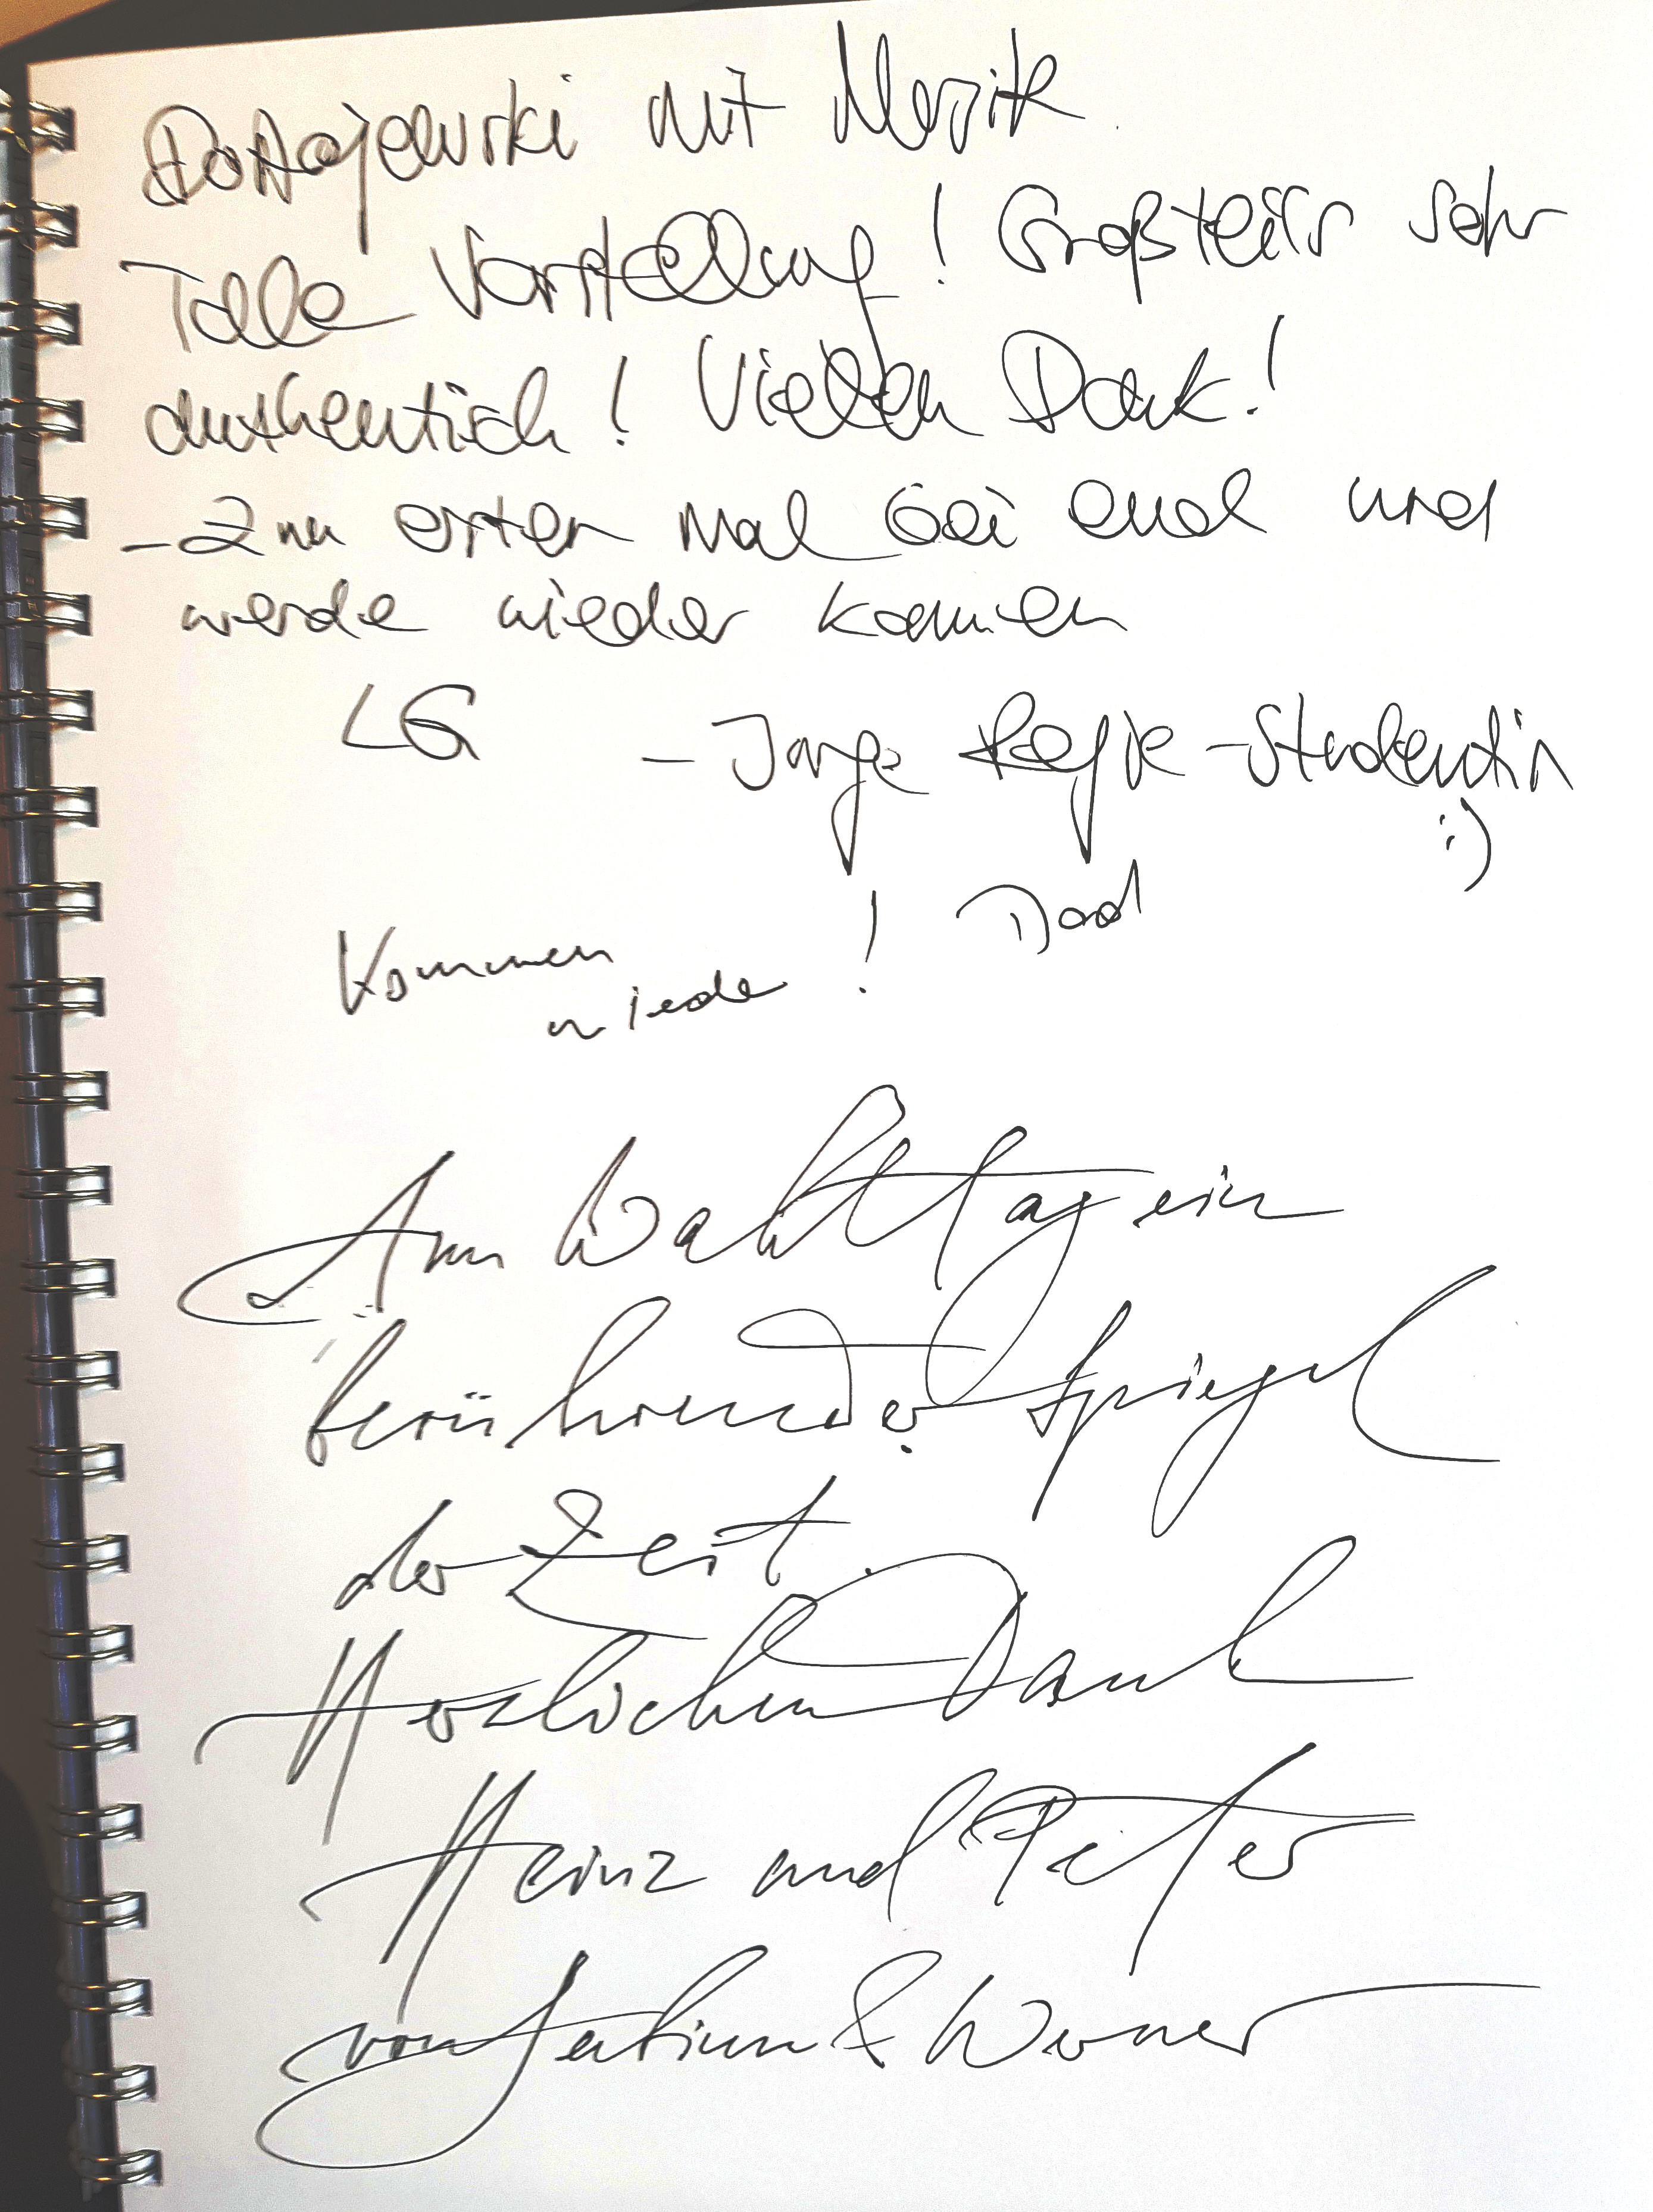 Dostojewski mit Musik
Tolle Vorstellung! Großteils sehr
authentisch! Vielen Dank!
- Zum ersten Mal bei euch und
werde wieder kommen
LG - Junge Regie-Studentin
:)
Kommen
wieder!
Am Wahltag ein
berührender Spiegel
der Zeit
Herzlichen Dank
Heinz und Peter
von & Werner